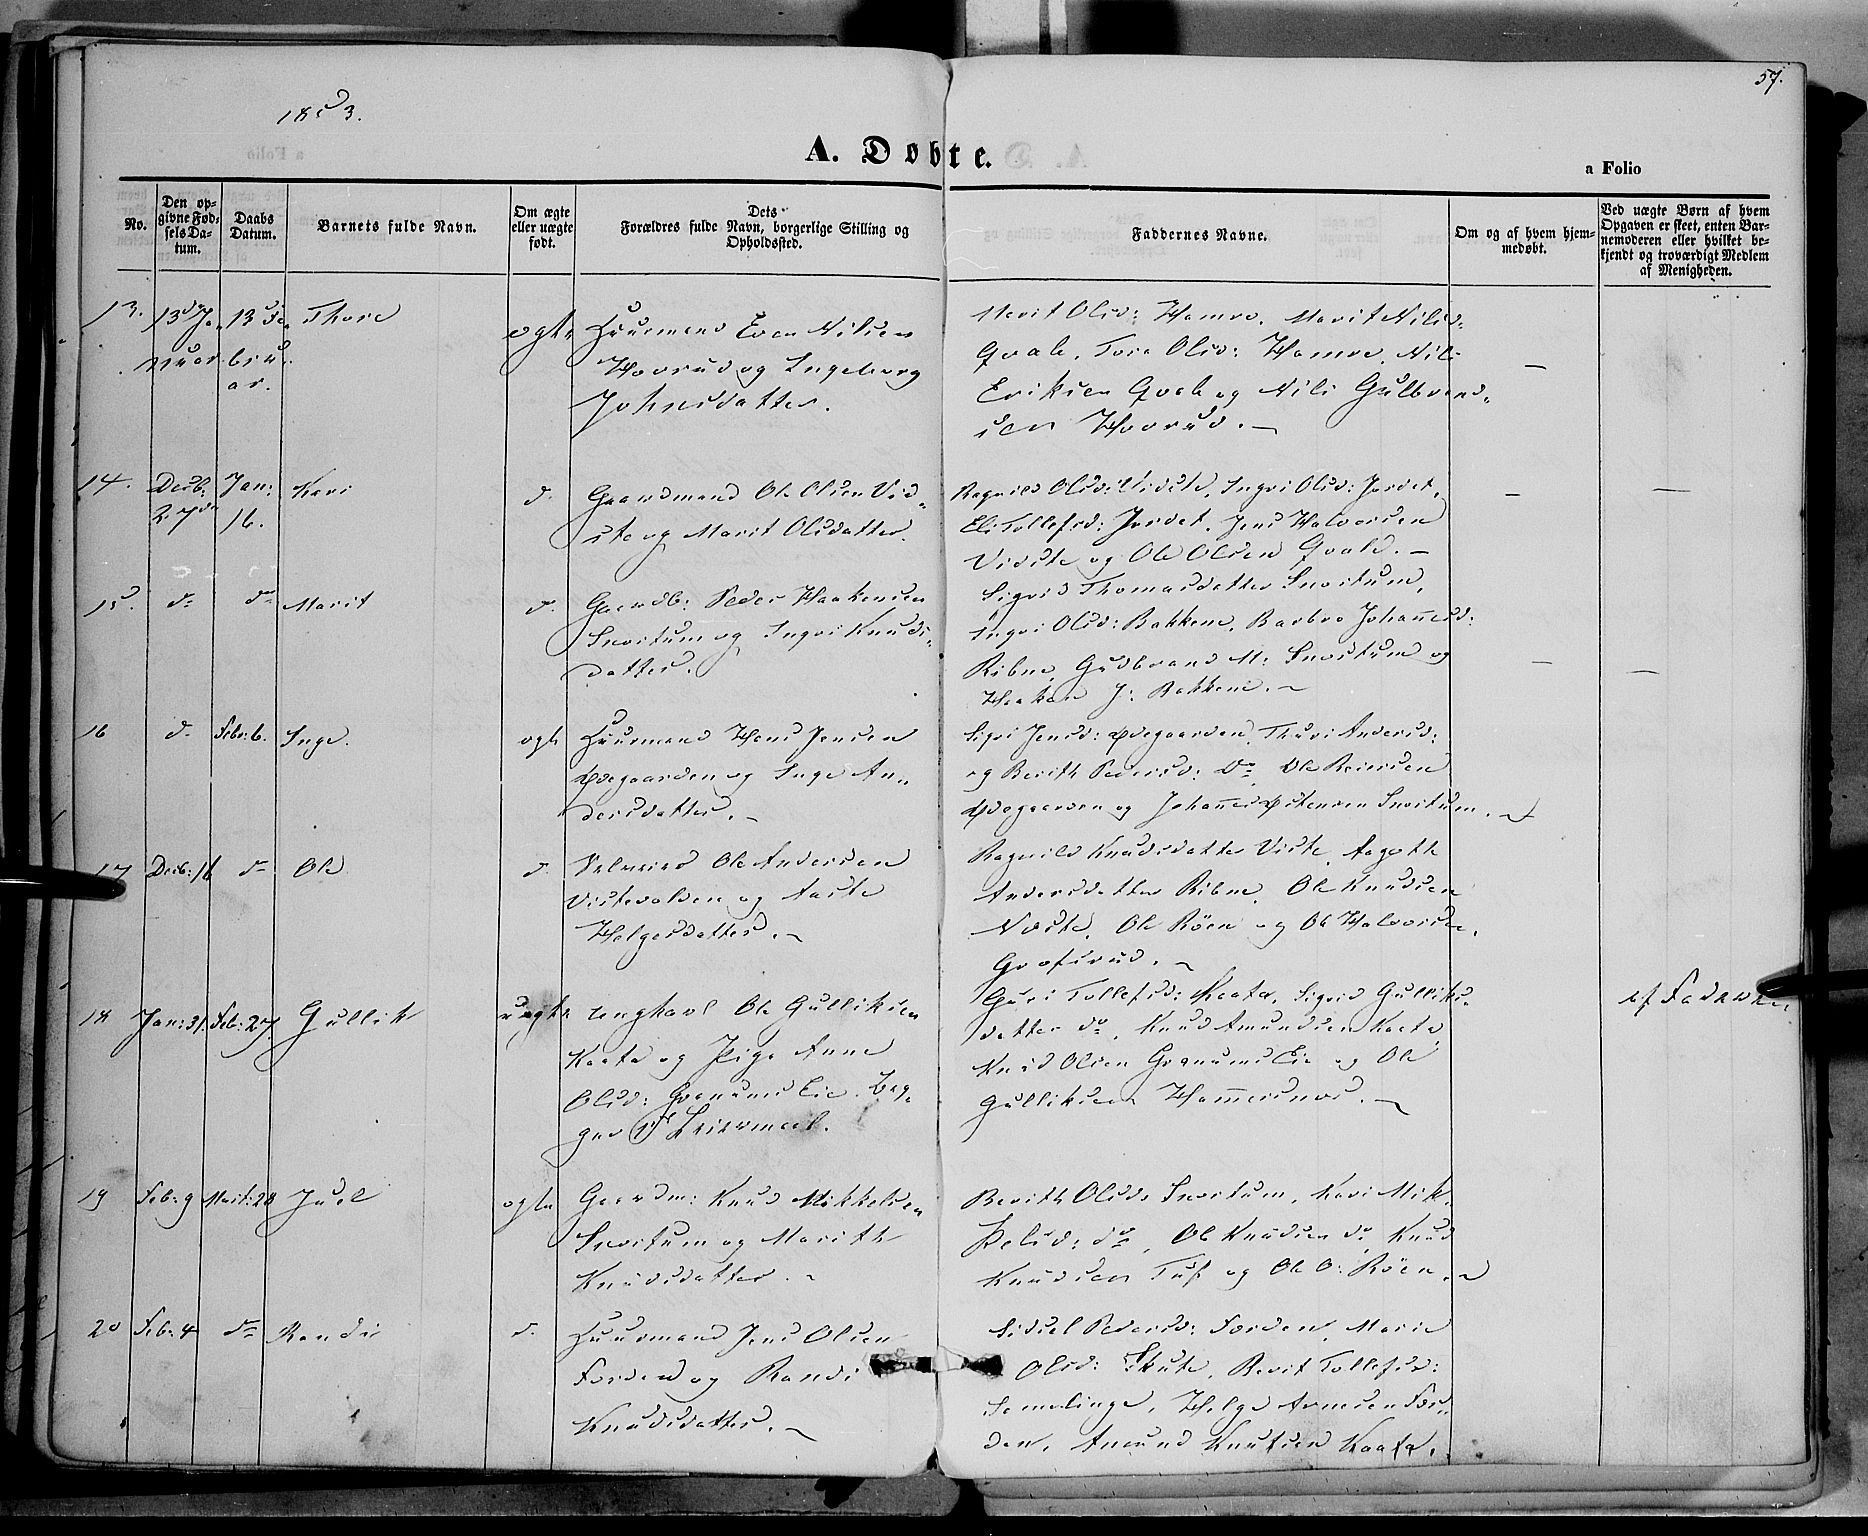 57.
1853.
A. Døbte.
a Folio
No.
Den opgivne Fødsels Datum.
Daabs Datum.
Barnets fulde Navn.
Om ægte eller uægte født.
Dets Forældres fulde Navn, borgerlige Stilling og Opholdssted.
Faddernes Navne.
Om og af hvem hjemmedøbt.
Ved uægte Børn af hvem Opgaven er skeet, enten Barnemoderen eller hvilket bekjendt og troværdigt Medlem af Menigheden.
13. 13de Januar 13de Februar. Thore ægte Huusmand Even Nilsen
Hovrud og Ingeborg
Johnsdatter.
Marit Olsd: Hamre, Marit Nilsd:
Qvale, Tore Olsd: Hamre, Nils
Eriksen Qvale og Nils Gulbrand-
sen Hovrud. —
14. Decb: 27de Jan: 16. Kari d. Gaardmand Ole Olsen Vid-
ste og Marit Olsdatter.
Ragnild Olsd: Vidste, Ingri Olsd: Jordet,
Eli Tollefsd: Jordet, Jens Halvorsen
Vidste og Ole Olsen Qvale. —
15. do do Marit d. Gaardb: Peder Haakensen
Snortum og Ingri Knuds-
datter.
Sigrid Thomasdatter Snortum,
Ingri Olsd: Bakkene, Barbro Johannesd:
Ribne, Gudbrand M: Snortum og
Haaken J: Bakkene. —
16 do Febr: 6. Inge. ægte Huusmand Hans Jensen
Ødegaarden og Inge An-
dersdatter. —
Sigri Jensd: Ødegaarden, Thuri Andersd:
og Berith Pedersd: do Ole Reiersen
Ødegaarden og Johannes Østensen Snortum. —
17 Decb: 16 do Ole d. Selveier Ole Andersen
Vistevolden og Aaste
Helgesdatter. —
Ragnild Knudsdatter Viste, Aagoth
Andersdatter Ribne, Ole Knudsen
Viste, Ole Røen og Ole Halvorsen
Grøfsrud. —
18 Jan: 31. Feb: 27. Gullik uægte Ungkarl Ole Gulliksen
Kaata og Pige Anne
Olsd: Granums Eie. Beg-
ges 1ste Leiermaal.
Guri Tollefsd: Kaata, Sigrid Gulliks-
datter do, Knud Amundsen Kaata,
Knud Olsen Granums Eie og Ole
Gulliksen Hammersnes. —
af Faderen.
19 Feb: 9 Marts: 28 Juel ægte Gaardm: Knud Mikkelsen
Snortum og Marith
Knudsdatter. —
Berith Olsd: Snortum, Kari Mik-
kelsd: do, Ole Knudsen do, Knud
Knudsen Tuf og Ole O: Røen. —
20 Feb: 4 do Randi d. Huusmand Jens Olsen
Forden og Randi
Knudsdatter. —
Sidsel Pedersd: Forden, Marie
Olsd: Skute, Berit Tollefsd:
Semelinge, Helge Arnesen For-
den, Amund Knutsen Kaata.